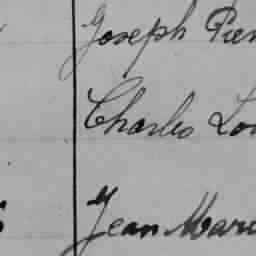 Joseph Pier
Charles Lou
Jean Marc